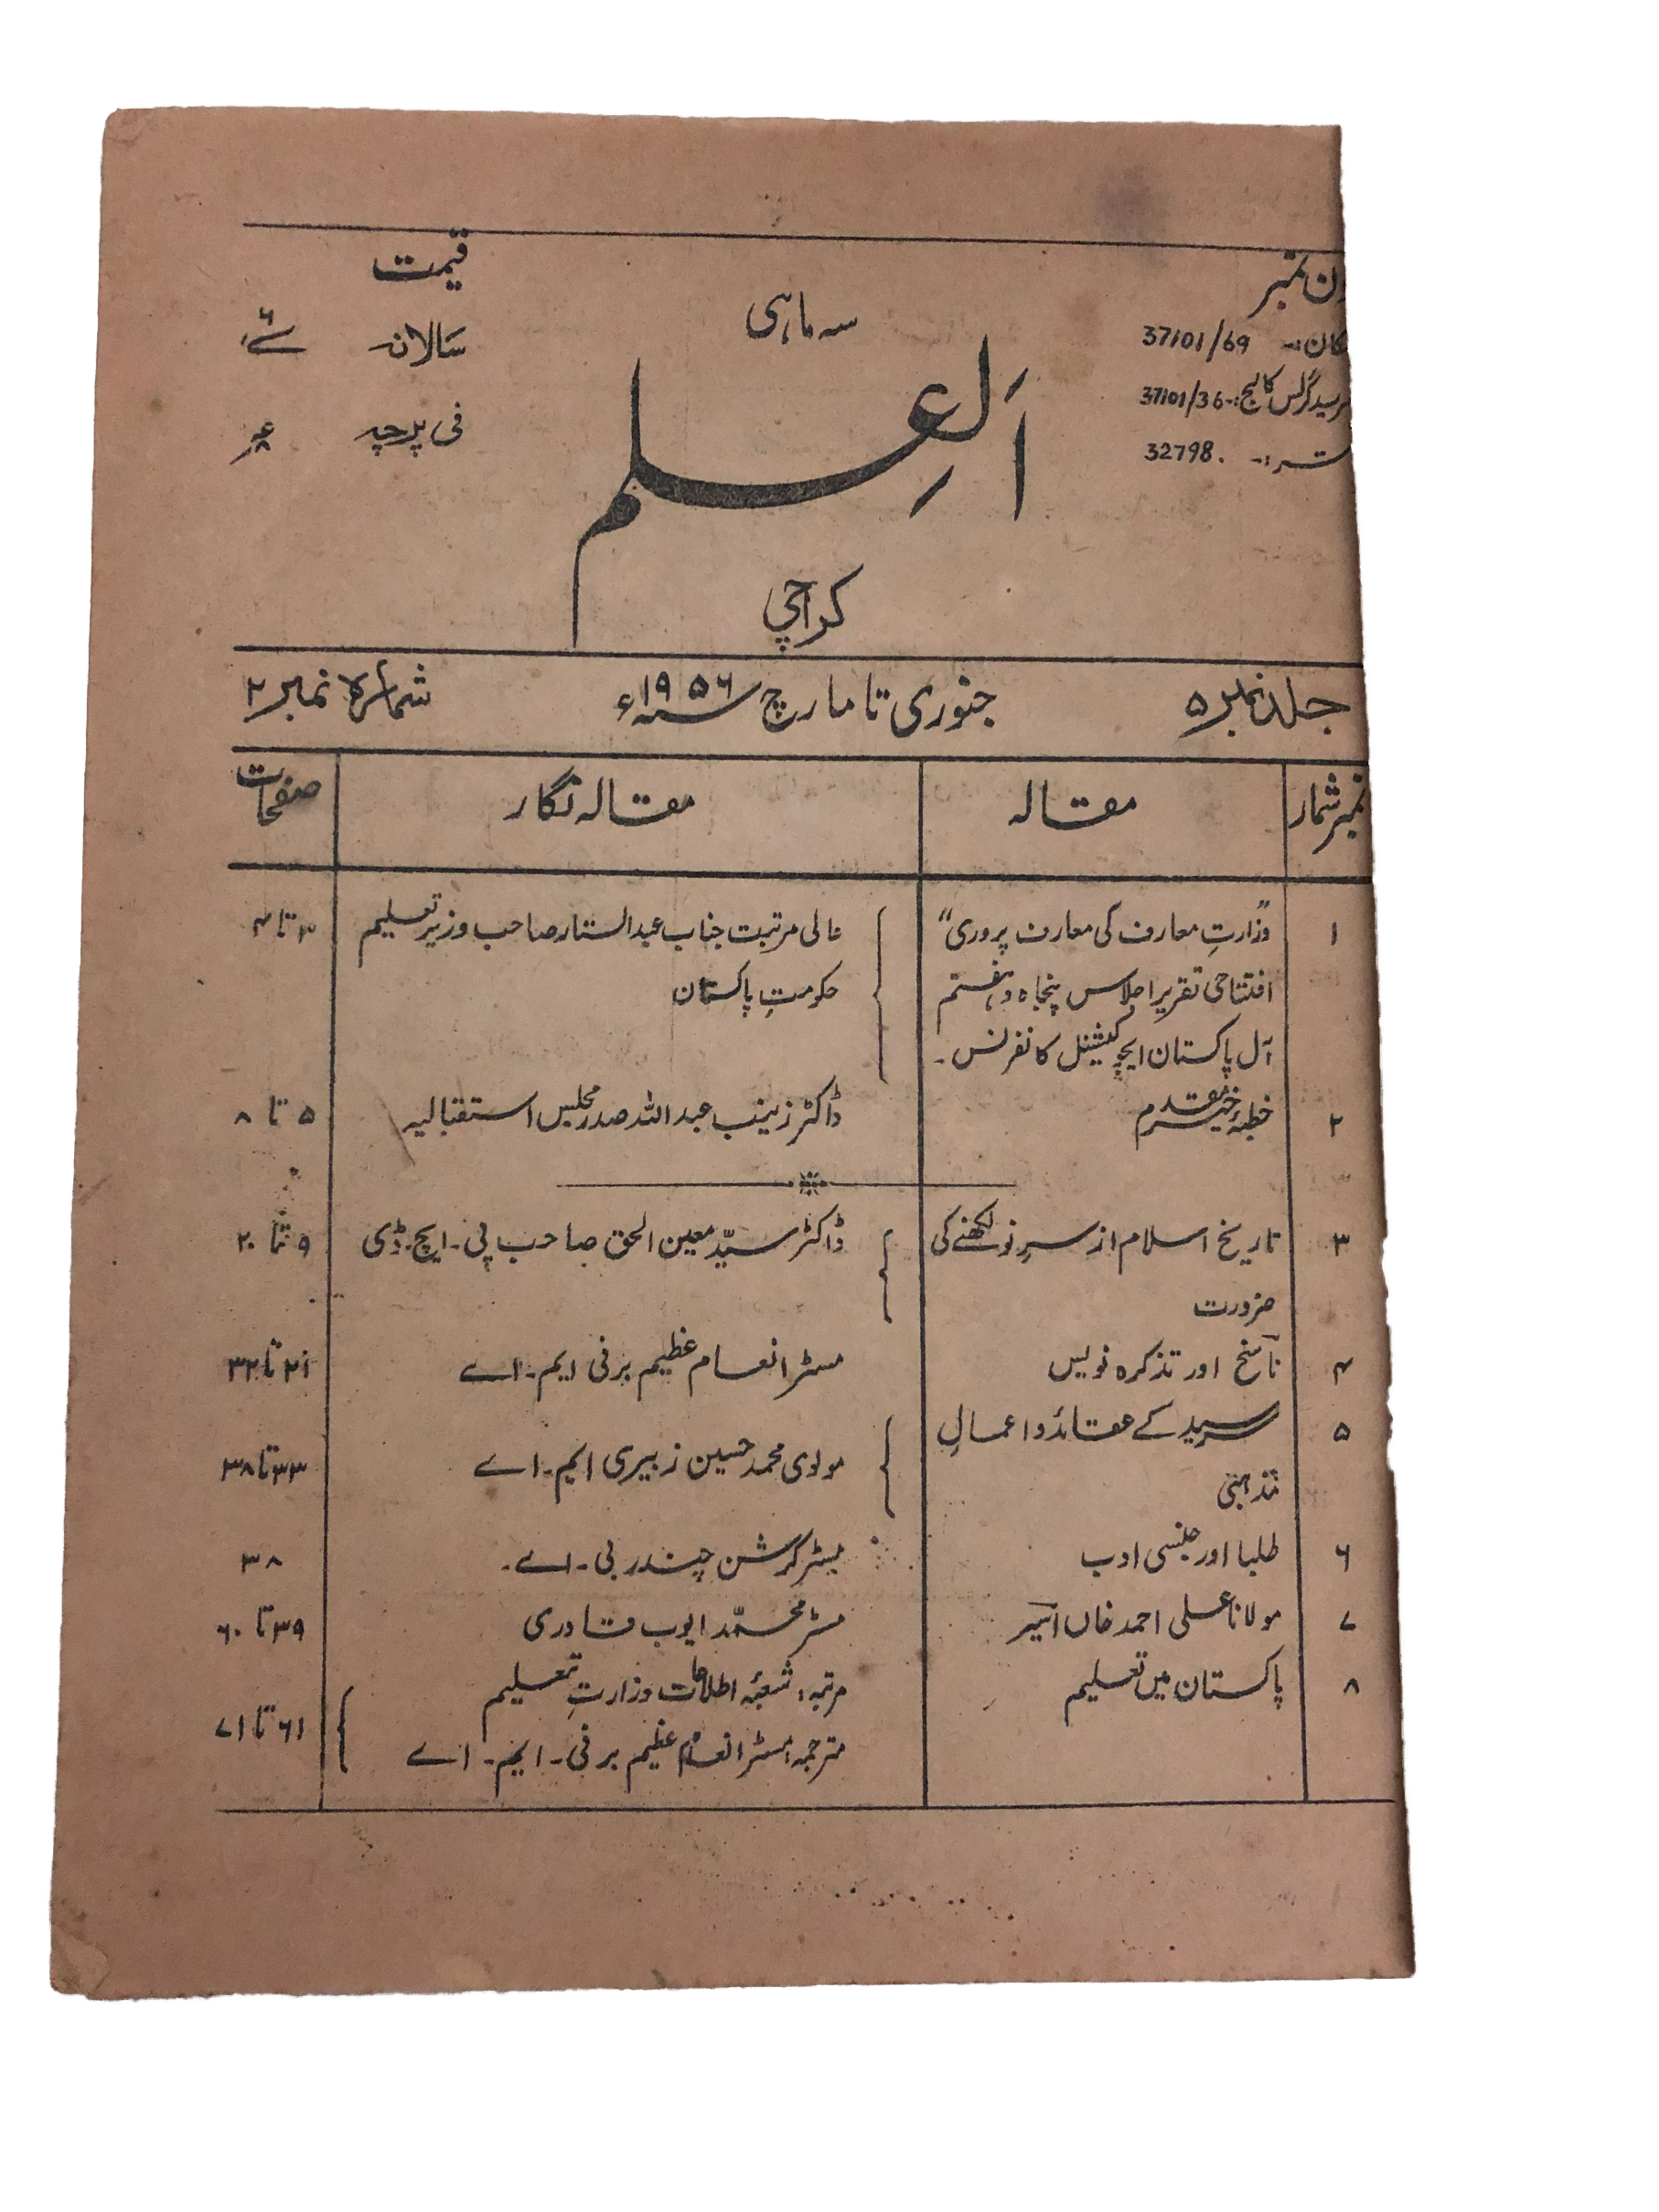 نمبر
37101/69
سرسید گرلس کالج:- 37101/36
32798.
سہ ماہی
اَلعِلم
کراچی
قیمت
سالانہ
فی پرچہ
جلد نمبر ۵ جنوری تا مارچ ۱۹۵۶ء شمارہ نمبر ۲
نمبر شمار مقالہ مقالہ نگار صفحات
۱ "وزارتِ معارف کی معارف پروری" عالی مرتبت جناب عبدالستار صاحب وزیر تعلیم ۳ تا ۴
افتتاحی تقریر اجلاس پنجاہ و ہفتم حکومتِ پاکستان
آل پاکستان ایجوکیشنل کانفرنس۔
۲ خطبۂ خیر مقدم ڈاکٹر زینب عبداللہ صدر مجلس استقبالیہ ۵ تا ۸
۳ تاریخ اسلام از سرِ نو لکھنے کی ڈاکٹر سیّد معین الحق صاحب پی۔ ایچ۔ ڈی ۹ تا ۲۰
ضرورت
۴ ناسخ اور تذکرہ نویس مسٹر انعام عظیم برنی ایم۔ اے ۲۱ تا ۳۲
۵ سرسید کے عقائد و اعمالِ مولوی محمد حسین زبیری ایم۔ اے ۳۳ تا ۳۸
مذہبی
۶ طلبا اور جنسی ادب مسٹر کرشن چندر بی۔ اے۔ ۳۸
۷ مولانا علی احمد خاں اسیر مسٹر محمّد ایوب قادری ۳۹ تا ۶۰
۸ پاکستان میں تعلیم مرتبہ: شعبۂ اطلاعات وزارتِ تعلیم ۶۱ تا ۷۱
مترجمہ: مسٹر انعام عظیم برنی۔ ایم۔ اے